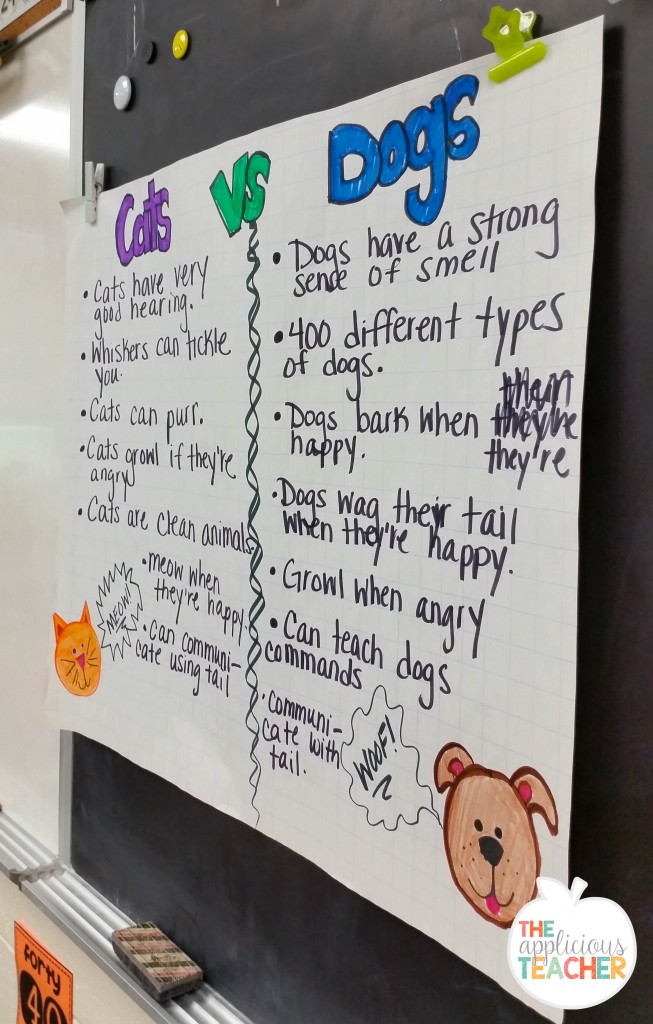 Cats vs Dogs
• Cats have very
good hearing.
• Whiskers can tickle
you.
• Cats can purr.
• Cats growl if they're
angry
• Cats are clean animals.
• meow when
they're happy.
• can communi-
cate using tail
MEOW!
• Dogs have a strong
sense of smell
• 400 different types
of dogs.
• Dogs bark when they're
happy.
• Dogs wag their tail
when they're happy.
• Growl when angry
• Can teach dogs
commands
• communi-
cate with
tail.
WOOF!
forty
40
THE
applicious
TEACHER